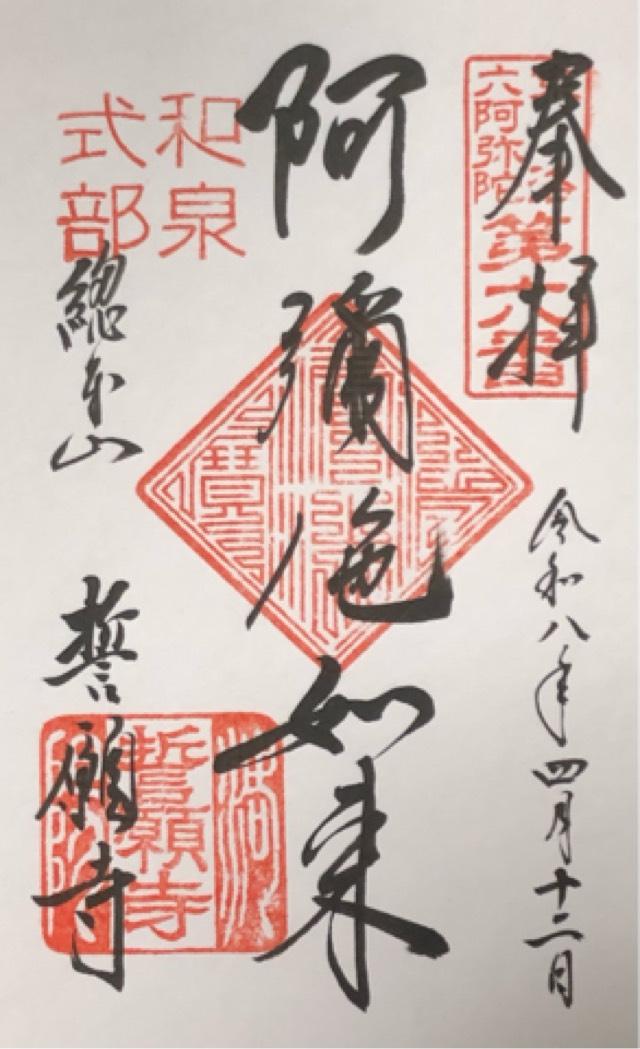 奉拝
六阿弥陀
第六番
令和八年四月十二日
阿彌陀如来
和泉
式部
總本山
誓願寺
誓願寺